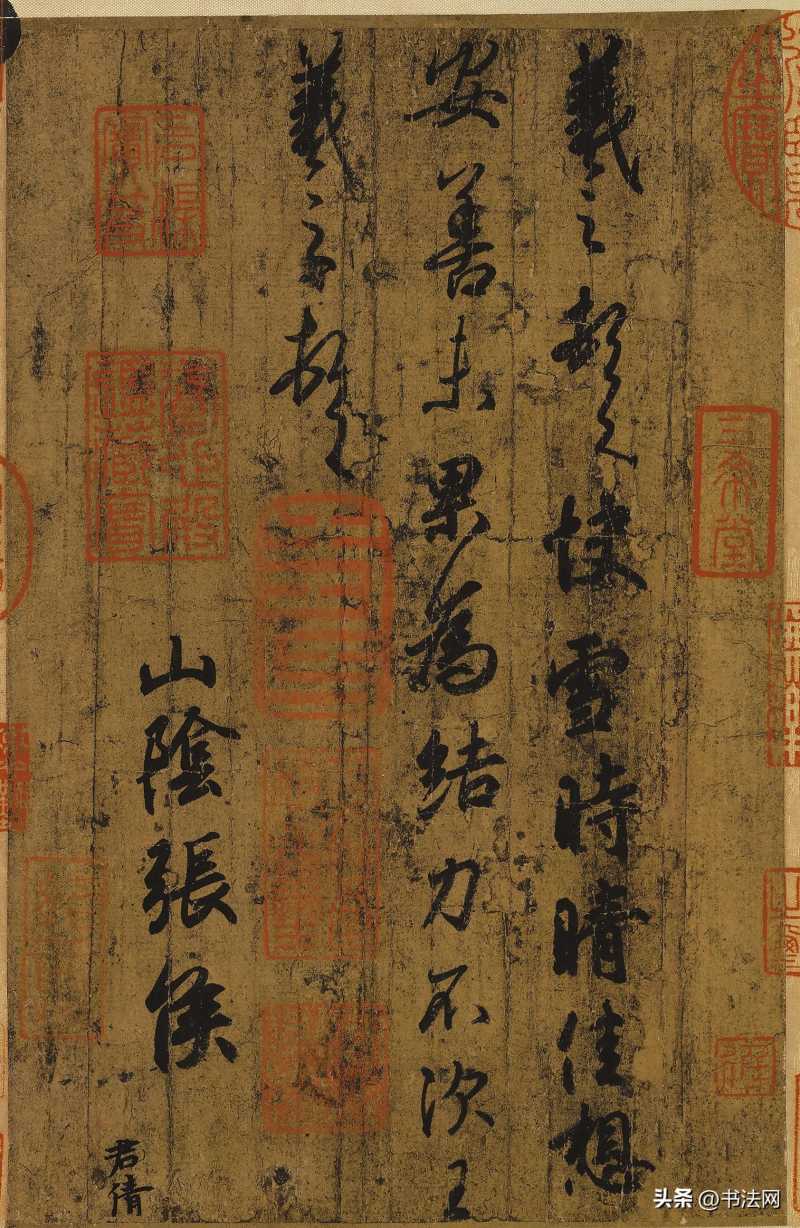 羲之頓首快雪時晴佳想
安善未果為結力不次王
羲之頓首
山陰張侯
君倩
三希堂
頭条 @书法网